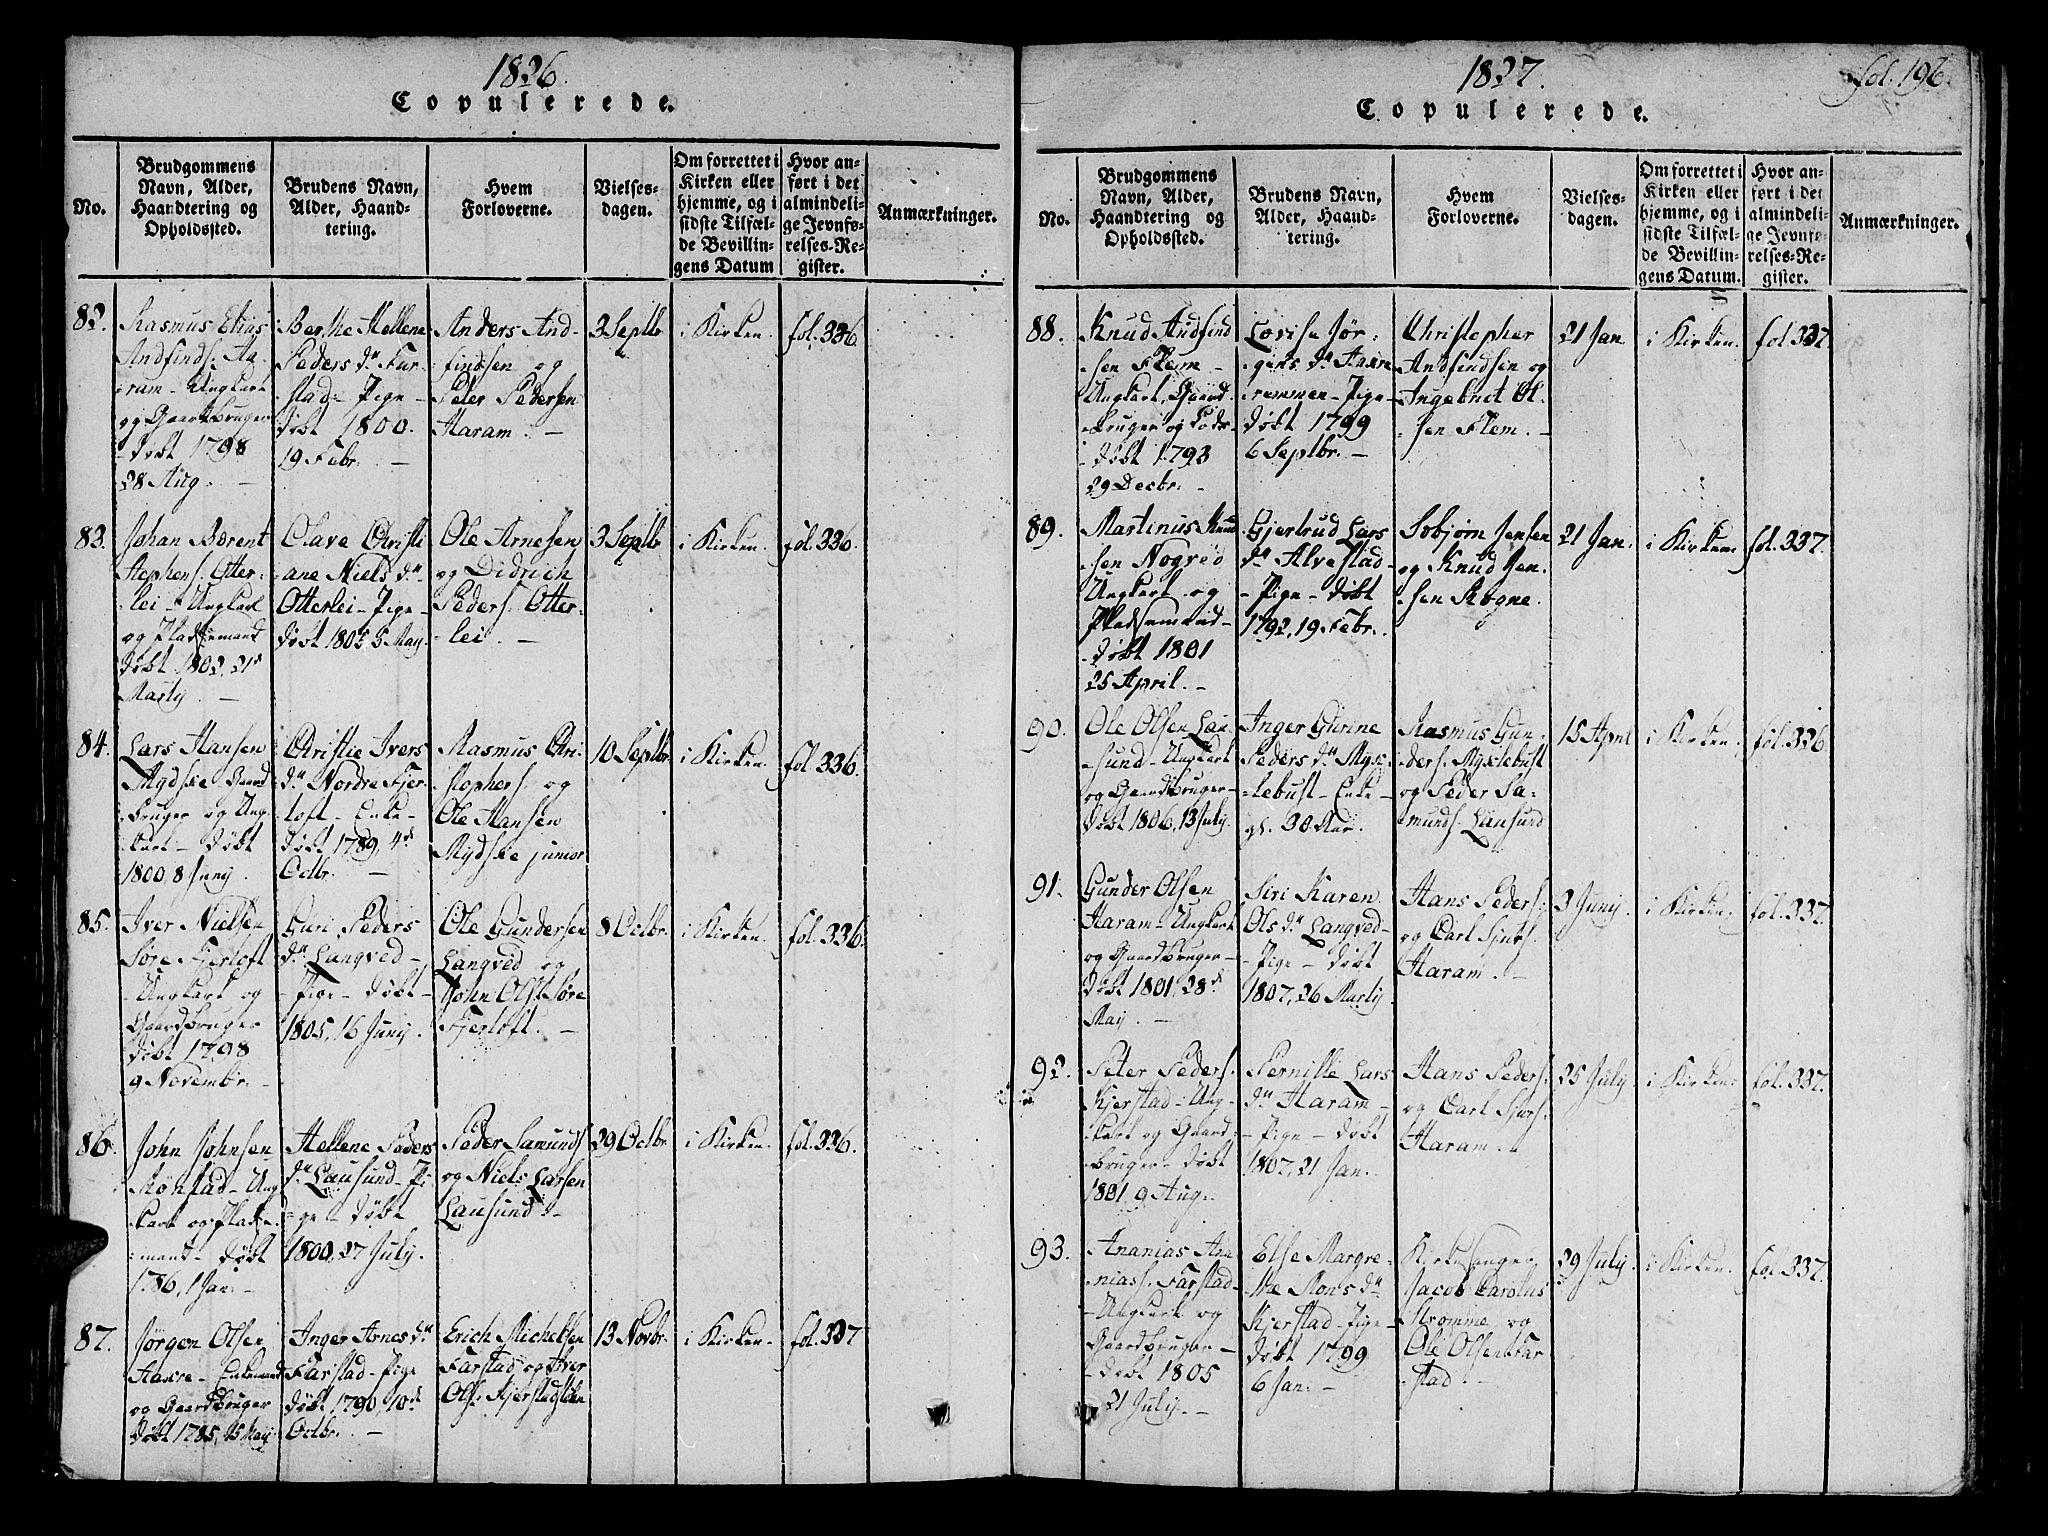 1826.
Copulerede.
No.
Brudgommens
Navn, Alder,
Haandtering og
Opholdssted.
Brudens Navn,
Alder, Haand-
tering.
Hvem
Forloverne.
Vielses-
dagen.
Om forrettet i
Kirken eller
hjemme, og i
sidste Tilfæl-
de Bevillin-
gens Datum
Hvor an-
ført i det
almindeli-
ge Jevnfø-
relses-Re-
gister.
Anmærkninger.
82.
Rasmus Elias
Andfinds: Ha-
ram - Ungkarl
og Gaardbruger
Døbt 1798
28 Aug. -
Berthe Hellene
Peders dr Far-
stad - Pige -
Døbt 1800.
19 Febr. -
Anders And-
findsen og
Peter Pedersen
Haram. -
3 Septbr
i Kirken.
fol. 336
83.
Johan Bærent
Stephens. Otter-
lei - Ungkarl
og Pladsemand
Døbt 1802, 21d
Martij. -
Olave Christi
ane Niels dr
Otterlei - Pige -
Døbt 1805 5 May.
Ole Arnesen
og Didrich
Peders. Otter-
lei. -
3 Septbr
i Kirken.
fol. 336.
84.
Lars Hansen
Mydske Gaard
bruger og Ung-
karl - Døbt
1800, 8 Junij.
Christie Ivers
dr Nordre Fjer-
toft - Enke -
Døbt 1789, 4d
Octbr. -
Rasmus Chri-
stophers. og
Ole Hansen
Mydske junior
10 Septbr.
i Kirken.
fol 336.
85.
Iver Nielsen
Søre Fjertoft
- Ungkarl og
Gaardbruger
Døbt 1798
9 Novembr. -
Guri Peders
dr Langved -
- Pige - Døbt -
1805, 16 Junij.
Ole Gundersen
Langved og
John Ols. Søre
Fjertoft. -
8 Octbr.
i Kirken.
fol. 336.
86.
John Johnsen
Rønstad - Ung
karl og Plads-
mand - Døbt
1786, 1 Jan. -
Hellene Peders
dr Lausund - Pi
ge - Døbt
1800, 27 July.
Peder Samunds
og Niels Larsen
Lausund. -
29 Octbr.
i Kirken.
fol. 336.
87.
Jørgen Olsen
Haxre - Enkemand
og Gaardbruger
Døbt 1785, 15 May.
Inger Arnes dr
Farstad - Pige
Døbt 1790, 10d
Octbr. -
Erich Michelsen
Farstad og Iver
Ols. Kjerstad
13 Novbr.
i Kirken.
fol. 337
1827.
Fol. 196.
Copulerede.
No.
Brudgommens
Navn, Alder,
Haandtering og
Opholdssted.
Brudens Navn,
Alder, Haand-
tering.
Hvem
Forloverne.
Vielses-
dagen.
Om forrettet i
Kirken eller
hjemme, og i
sidste Tilfæl-
de Bevillin-
gens Datum.
Hvor an-
ført i det
almindeli-
ge Jevnfø-
relses-Re-
gister.
Anmærkninger.
88.
Knud Andfind
sen Flem -
Ungkarl, Gaard
bruger og
Døbt 1793
29 Decbr. -
Lovise Jør-
gens dr Haxre
remmen - Pige -
Døbt 1799
6 Septbr. -
Christopher
Andfindsen og
Ingebrit Ol-
sen Flem. -
21 Jan
i Kirken.
fol 337
89.
Martinus Knud
sen Nogvæ
Ungkarl og
Pladsemand -
Døbt 1801
25 April. -
Gjertrud Lars
dr Alvestad -
- Pige - Døbt
1792, 19 Febr.
Sobjørn Jensen
og Knud Jen-
sen Rogne.
21 Jan.
i Kirken.
fol. 337.
90.
Ole Olsen Lau
sund - Ungkarl
og Gaardbruger -
Døbt 1806, 13 July.
Inger Gurine
Peders dr Myx-
lebust - Enke -
gl. 30 Aar.
Rasmus Gun-
ders. Myxlebust
og Peder Sa-
munds. Lausund
15 April
i Kirken.
fol. 336
91.
Gunder Olsen
Haram - Ungkarl
og Gaardbruger -
Døbt 1801, 28d
May. -
Siri Karen
Ols dr Langved -
- Pige - Døbt
1807, 26 Martij
Hans Peders.
og Carl Sjurs.
Haram. -
3 Junij.
i Kirken.
fol. 337.
92.
Peter Peders.
Kjerstad - Ung-
karl og Gaard-
bruger - Døbt
1801 9 Aug.
Pernille Lars
dr Haram -
- Pige - Døbt
1807, 21 Jan.
Hans Peders.
og Carl Sjurs.
Haram. -
25 July
i Kirken.
fol. 337.
93.
Ananias Ana
nias. Farstad -
- Ungkarl og
Gaardbruger -
- Døbt 1805
21 July. -
Else Margre-
the Mons dr
Kjerstad - Pige -
Døbt 1799
6 Jan. -
Kirkesanger
Jacob Carolus
Strømme og
Ole Olsen Far
stad -
29 July.
i Kirken.
fol. 337.